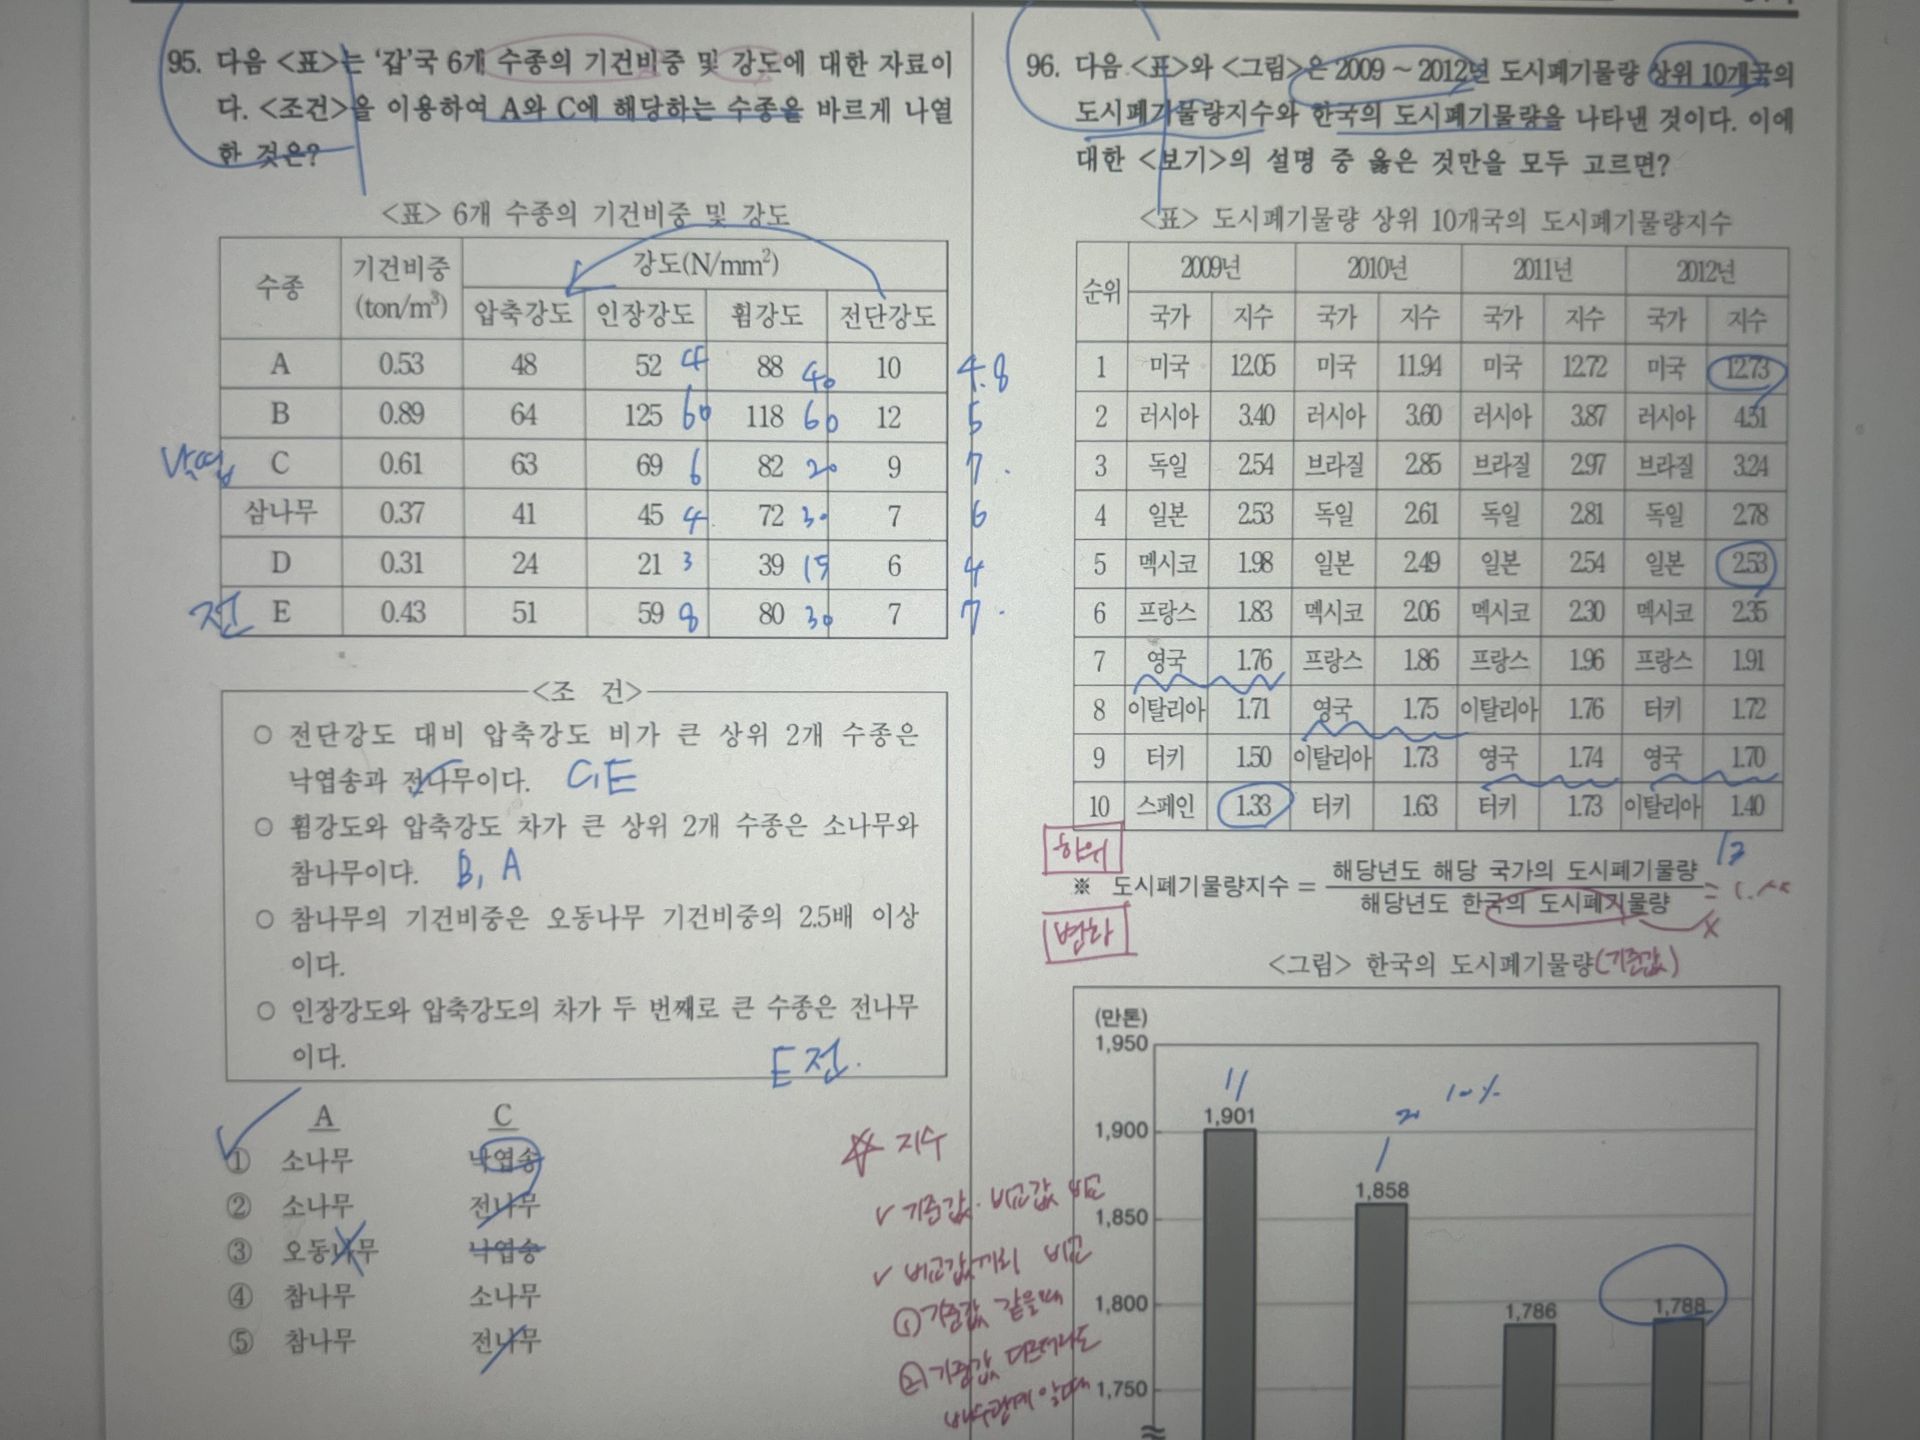 95. 다음 <표>는 '갑'국 6개 수종의 기건비중 및 강도에 대한 자료이
다. <조건>을 이용하여 A와 C에 해당하는 수종을 바르게 나열
한 것은?
<표> 6개 수종의 기건비중 및 강도
수종 기건비중 (ton/m³) 강도(N/mm²)
압축강도 인장강도 휨강도 전단강도
A 0.53 48 52 4 88 40 10 4.8
B 0.89 64 125 60 118 60 12 5
낙엽 C 0.61 63 69 6 82 20 9 7
삼나무 0.37 41 45 4 72 30 7 6
D 0.31 24 21 3 39 15 6 4
전 E 0.43 51 59 8 80 30 7 7
<조 건>
○ 전단강도 대비 압축강도 비가 큰 상위 2개 수종은
낙엽송과 전나무이다. C, E
○ 휨강도와 압축강도 차가 큰 상위 2개 수종은 소나무와
참나무이다. B, A
○ 참나무의 기건비중은 오동나무 기건비중의 2.5배 이상
이다.
○ 인장강도와 압축강도의 차가 두 번째로 큰 수종은 전나무
이다. E 전.
A C
① 소나무 낙엽송
② 소나무 전나무
③ 오동나무 낙엽송
④ 참나무 소나무
⑤ 참나무 전나무
지수
✓ 기준값·비교값 비교
✓ 비교값끼리 비교
① 기준값 같을때
② 기준값 다르더라도
배수관계 알때
96. 다음 <표>와 <그림>은 2009 ~ 2012년 도시폐기물량 상위 10개국의
도시폐기물량지수와 한국의 도시폐기물량을 나타낸 것이다. 이에
대한 <보기>의 설명 중 옳은 것만을 모두 고르면?
<표> 도시폐기물량 상위 10개국의 도시폐기물량지수
순위 2009년 2010년 2011년 2012년
국가 지수 국가 지수 국가 지수 국가 지수
1 미국 12.05 미국 11.94 미국 12.72 미국 12.73
2 러시아 3.40 러시아 3.60 러시아 3.87 러시아 4.51
3 독일 2.54 브라질 2.85 브라질 2.97 브라질 3.24
4 일본 2.53 독일 2.61 독일 2.81 독일 2.78
5 멕시코 1.98 일본 2.49 일본 2.54 일본 2.53
6 프랑스 1.83 멕시코 2.06 멕시코 2.30 멕시코 2.35
7 영국 1.76 프랑스 1.86 프랑스 1.96 프랑스 1.91
8 이탈리아 1.71 영국 1.75 이탈리아 1.76 터키 1.72
9 터키 1.50 이탈리아 1.73 영국 1.74 영국 1.70
10 스페인 1.33 터키 1.63 터키 1.73 이탈리아 1.40
하위
※ 도시폐기물량지수 = 해당년도 해당 국가의 도시폐기물량
해당년도 한국의 도시폐기물량
변화
<그림> 한국의 도시폐기물량 (기준값)
(만톤)
1,950
1,900
1,850
1,800
1,750
10%
1,901
1,858
1,786
1,788